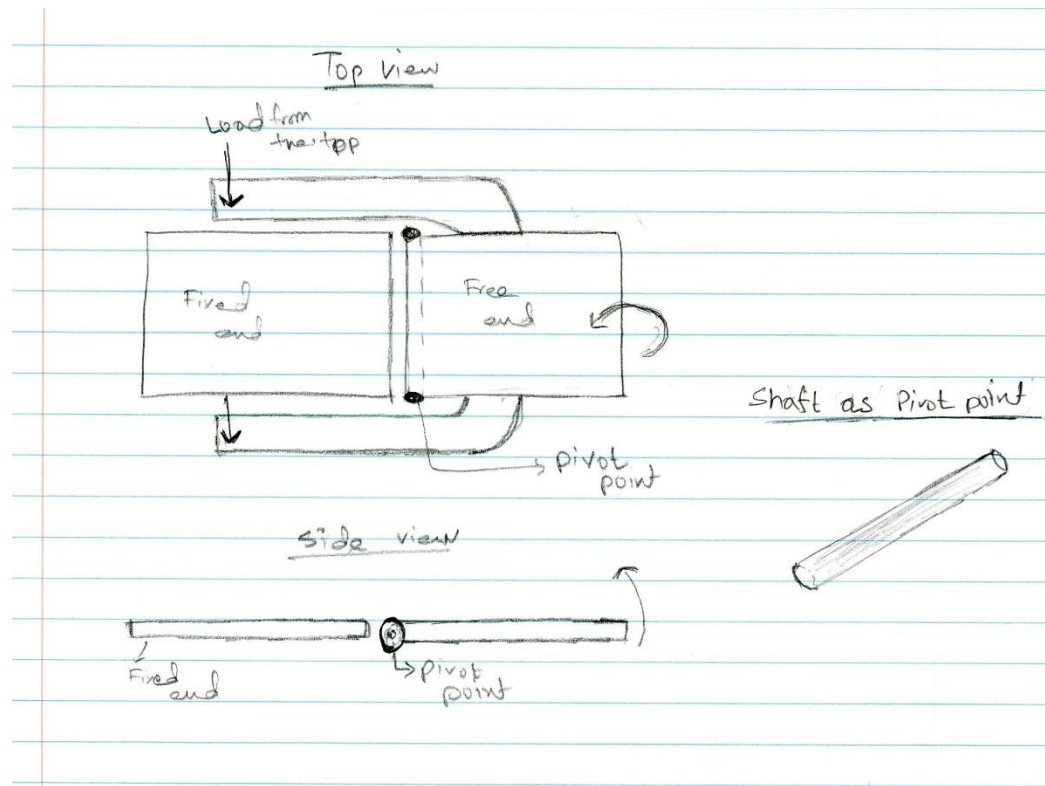 Top View
Load from
the top
Fixed
end
Free
end
Shaft as Pivot point
pivot
point
Side view
Fixed
end
pivot
point